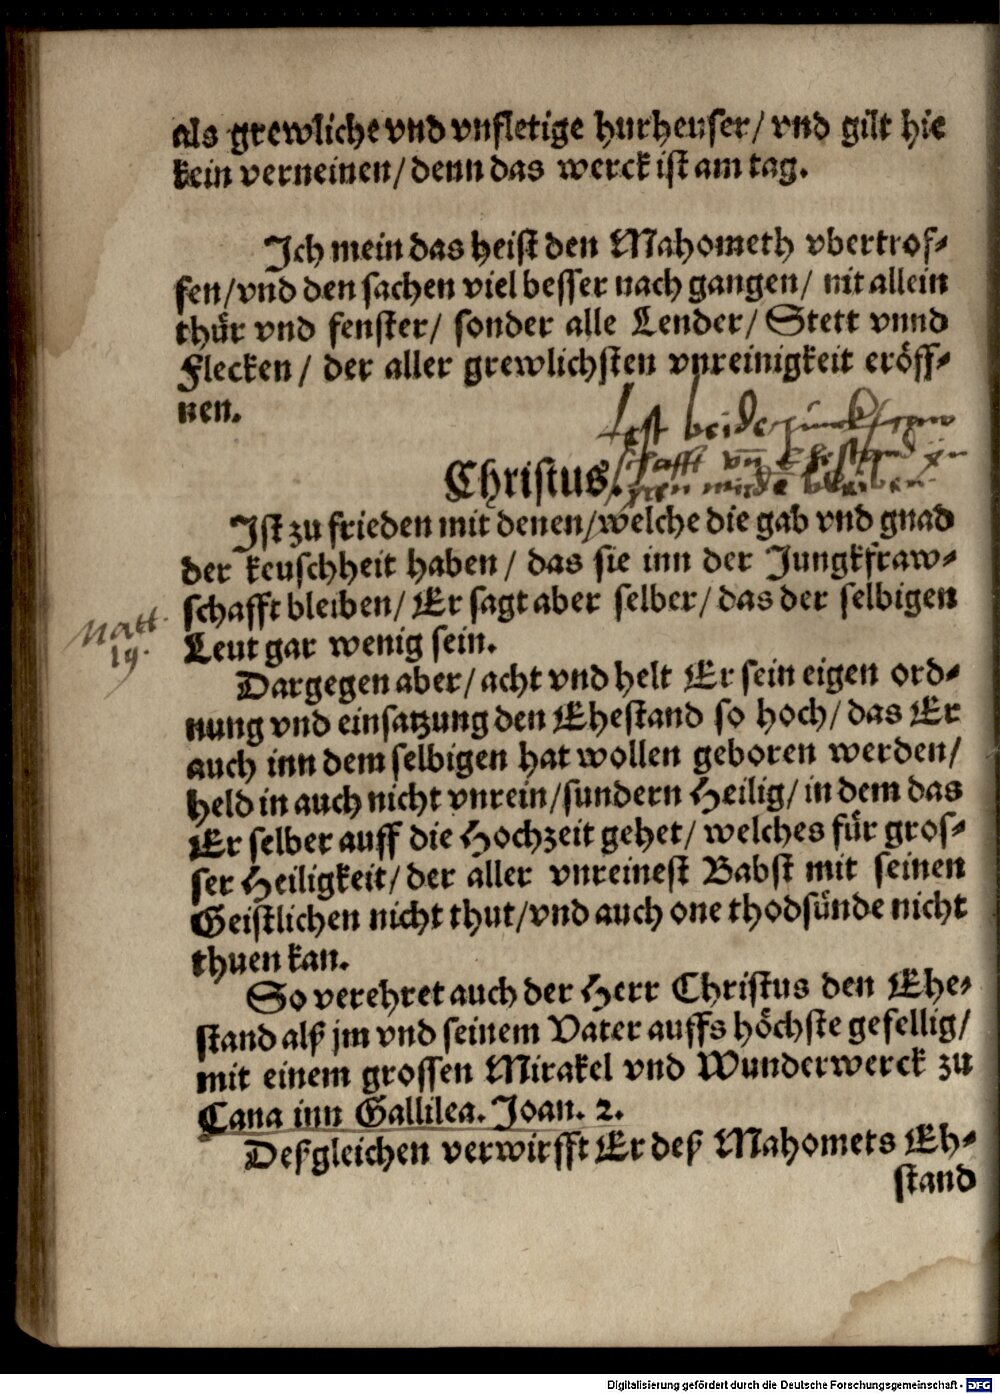 als grewliche vnd vnfletige hurheuser/ vnd gilt hie
kein verneinen/ denn das werck ist am tag.
Ich mein das heist den Mahometh vbertrof-
fen/ vnd den sachen viel besser nach gangen/ nit allein
thür vnd fenster/ sonder alle Lender/ Stett vnnd
Flecken/ der aller grewlichsten vnreinigkeit eröff-
nen.
lest beide Junckfraw
schafft vnd Ehestand in
wirde bleiben
Christus.
Ist zu frieden mit denen/ welche die gab vnd gnad
der keuschheit haben/ das sie inn der Jungkfraw-
schafft bleiben/ Er sagt aber selber/ das der selbigen
Matt.
19.
Leut gar wenig sein.
Dargegen aber/ acht vnd helt Er sein eigen ord-
nung vnd einsatzung den Ehestand so hoch/ das Er
auch inn dem selbigen hat wollen geboren werden/
held in auch nicht vnrein/ sundern Heilig/ in dem das
Er selber auff die Hochzeit gehet/ welches für gros-
ser Heiligkeit/ der aller vnreinest Babst mit seinen
Geistlichen nicht thut/ vnd auch one thodsünde nicht
thuen kan.
So verehret auch der Herr Christus den Ehe-
stand alß jm vnd seinem Vater auffs höchste gefellig/
mit einem grossen Mirakel vnd Wunderwerck zu
Cana inn Gallilea. Joan. 2.
Deßgleichen verwirfft Er deß Mahomets Eh-
stand
Digitalisierung gefördert durch die Deutsche Forschungsgemeinschaft - DFG